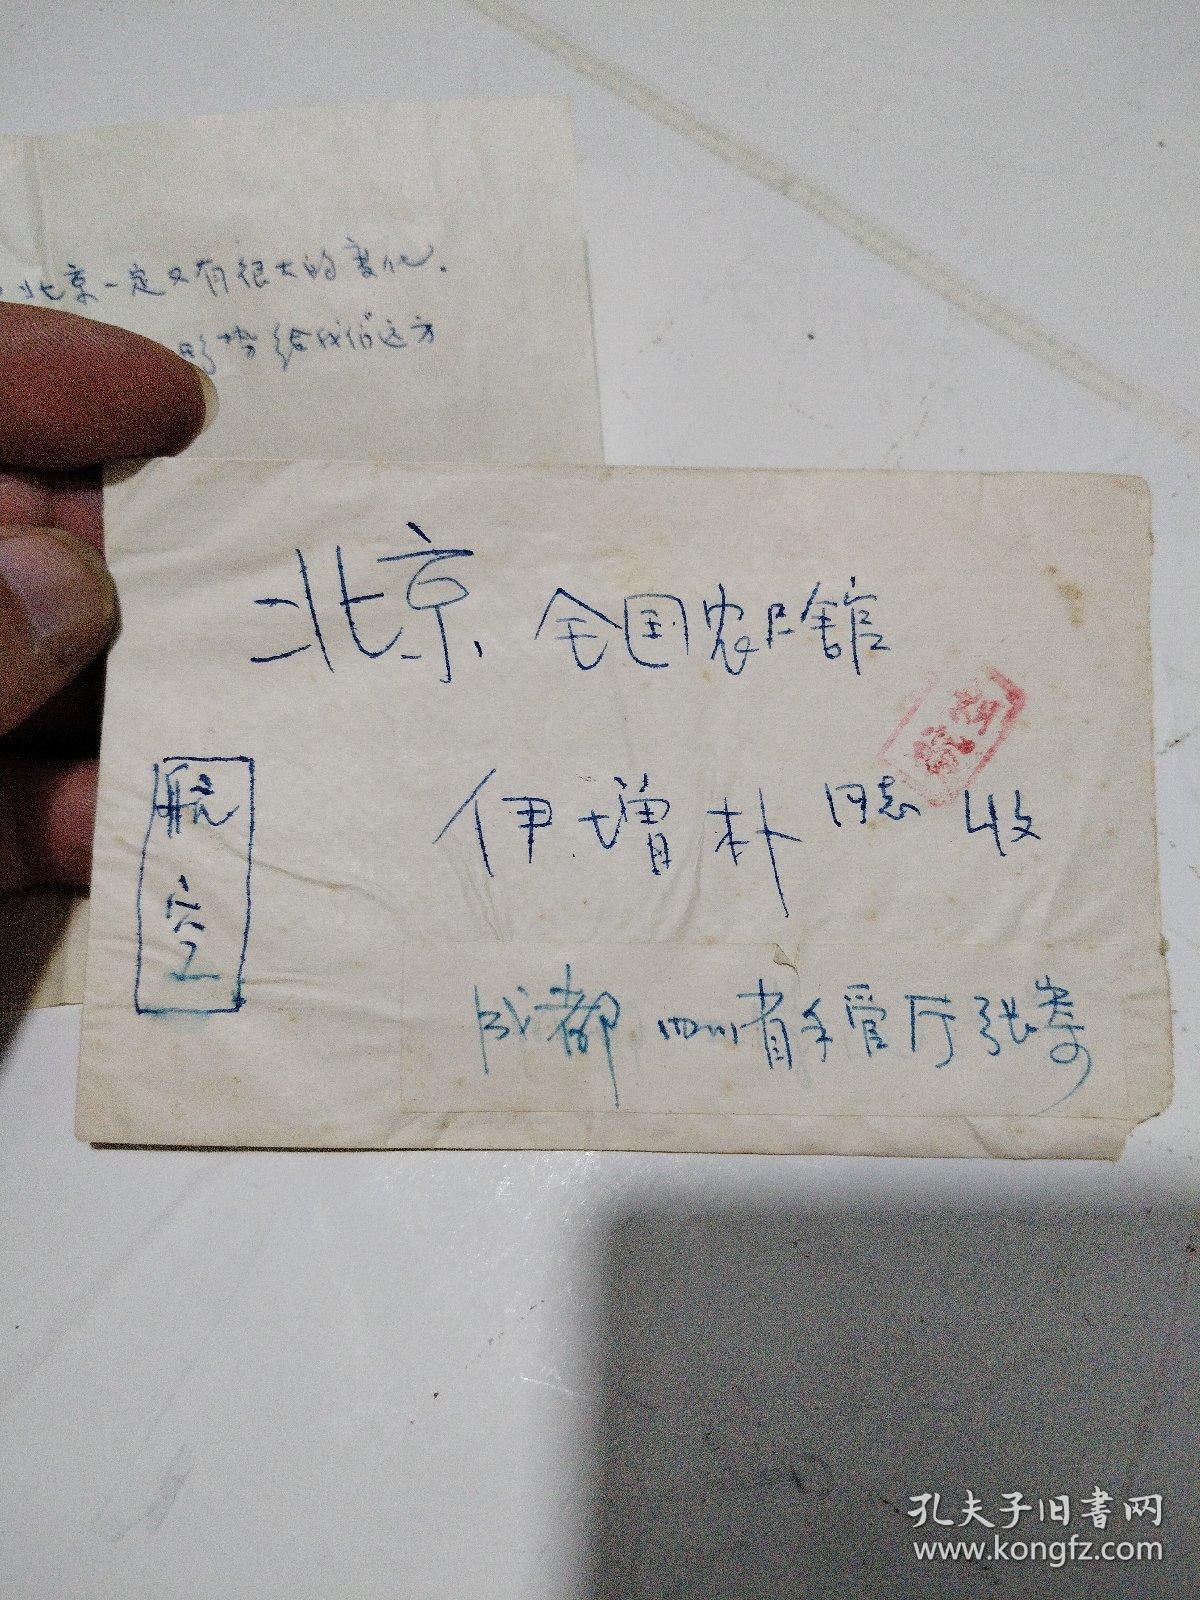 北京一定又有很大的变化.
形势给我们这方
北京、全国农尸馆
航空
伊增朴同志 收
成都 四川省手管厅张寄
孔夫子旧书网
www.kongfz.com